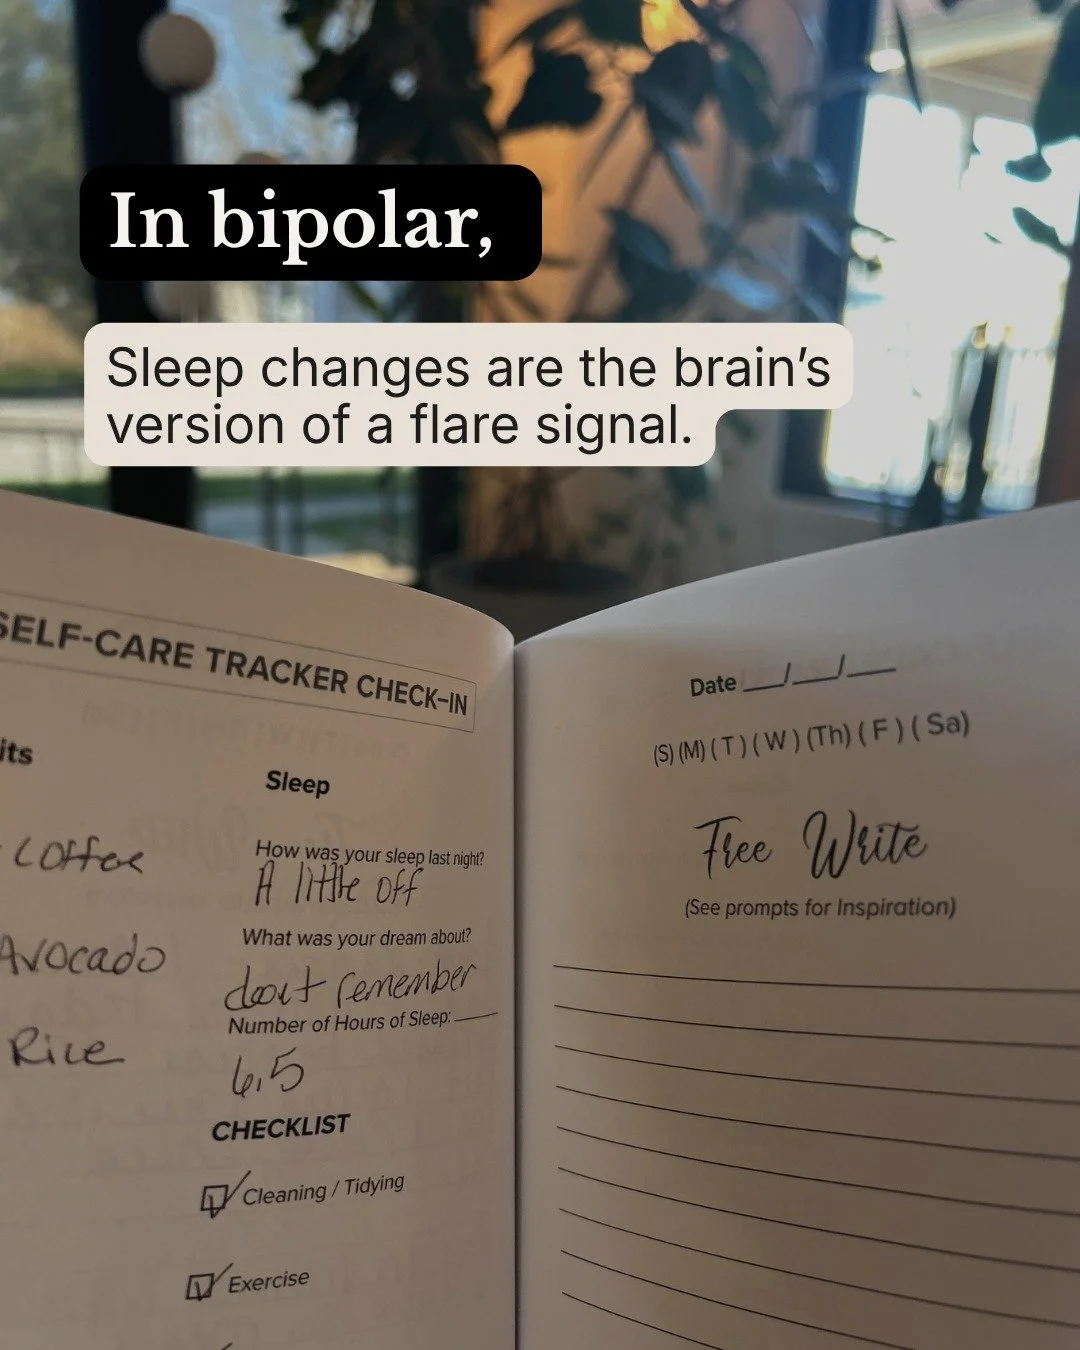 In bipolar,
Sleep changes are the brain’s
version of a flare signal.
SELF-CARE TRACKER CHECK-IN
its
Sleep
Coffee
How was your sleep last night?
A little off
Avocado
What was your dream about?
dont remember
Number of Hours of Sleep:
Rice
6.5
CHECKLIST
Cleaning / Tidying
Exercise
Date __/__/__
(S) (M) ( T ) ( W ) (Th) ( F ) ( Sa)
Free Write
(See prompts for Inspiration)